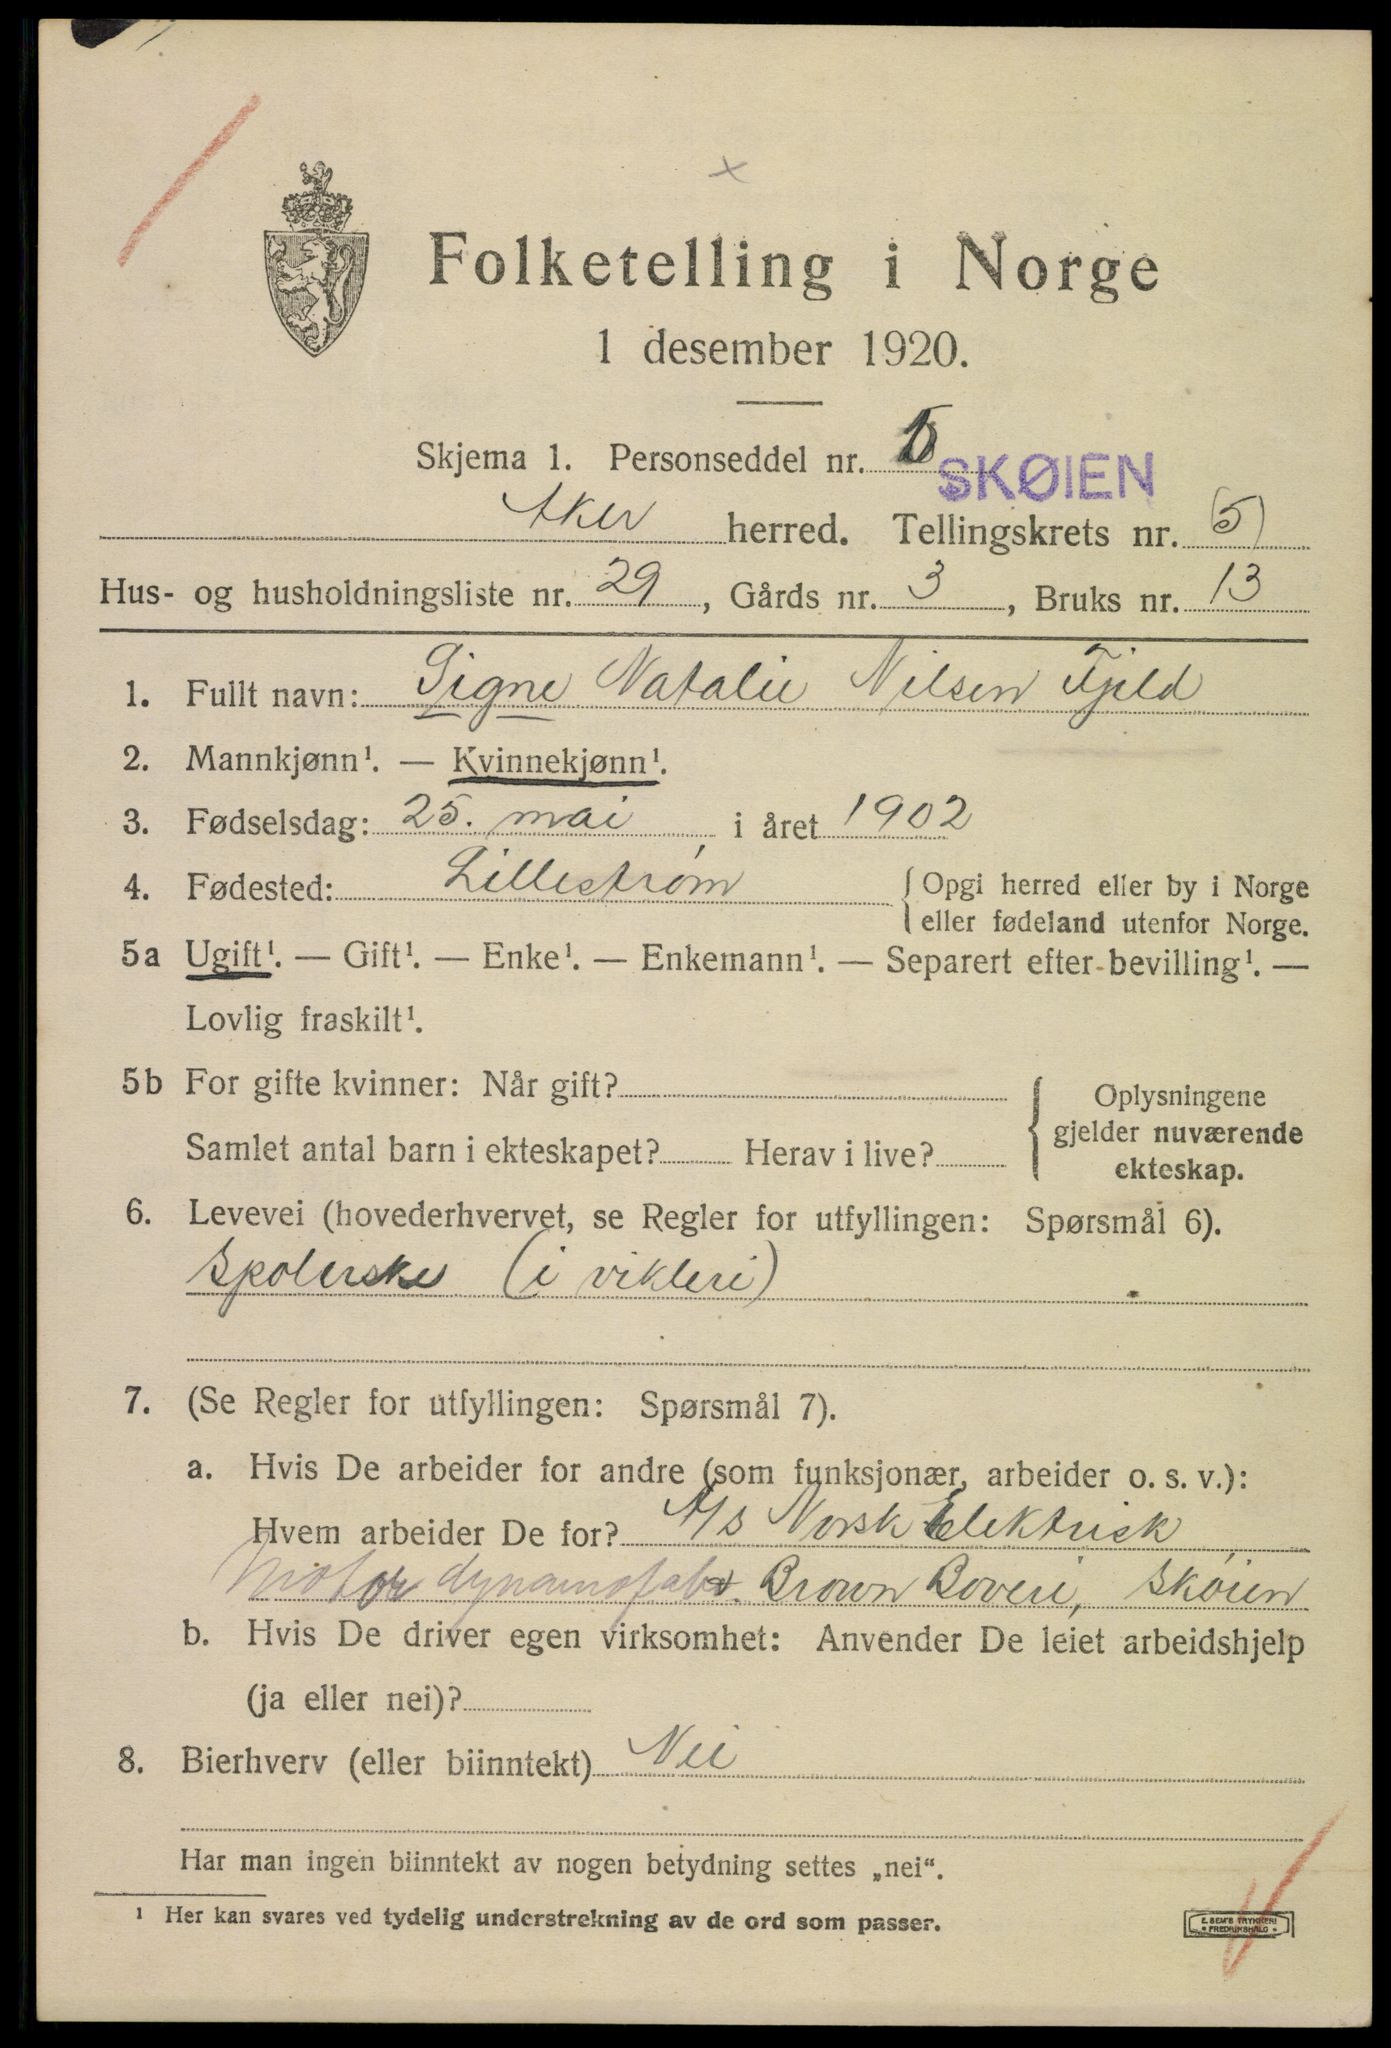 Folketelling i Norge
1 desember 1920.
Skjema 1. Personseddel nr.
SKØIEN
Aker herred. Tellingskrets nr. (5)
Hus- og husholdningsliste nr. 29, Gårds nr. 3, Bruks nr. 13
1. Fullt navn: Signe Natalie Nilsen Fjeld
2. Mannkjønn¹. — Kvinnekjønn¹.
3. Fødselsdag: 25. mai, i året 1902
4. Fødested: Lillestrøm
{ Opgi herred eller by i Norge
eller fødeland utenfor Norge.
5a Ugift¹. — Gift¹. — Enke¹. — Enkemann¹. — Separert efter bevilling¹. —
Lovlig fraskilt¹.
5b For gifte kvinner: Når gift?
Samlet antal barn i ekteskapet? Herav i live?
{ Oplysningene
gjelder nuværende
ekteskap.
6. Levevei (hovederhvervet, se Regler for utfyllingen: Spørsmål 6).
Spolerske (i vikleri)
7. (Se Regler for utfyllingen: Spørsmål 7).
a. Hvis De arbeider for andre (som funksjonær, arbeider o. s. v.):
Hvem arbeider De for? A/S Norsk Elektrisk
Motor dynamofabr. Brown Boveri, Skøien
b. Hvis De driver egen virksomhet: Anvender De leiet arbeidshjelp
(ja eller nei)?
8. Bierhverv (eller biinntekt) Nei
Har man ingen biinntekt av nogen betydning settes „nei“.
¹ Her kan svares ved tydelig understrekning av de ord som passer.
E. SEM'S TRYKKERI
FREDRIKSHALD